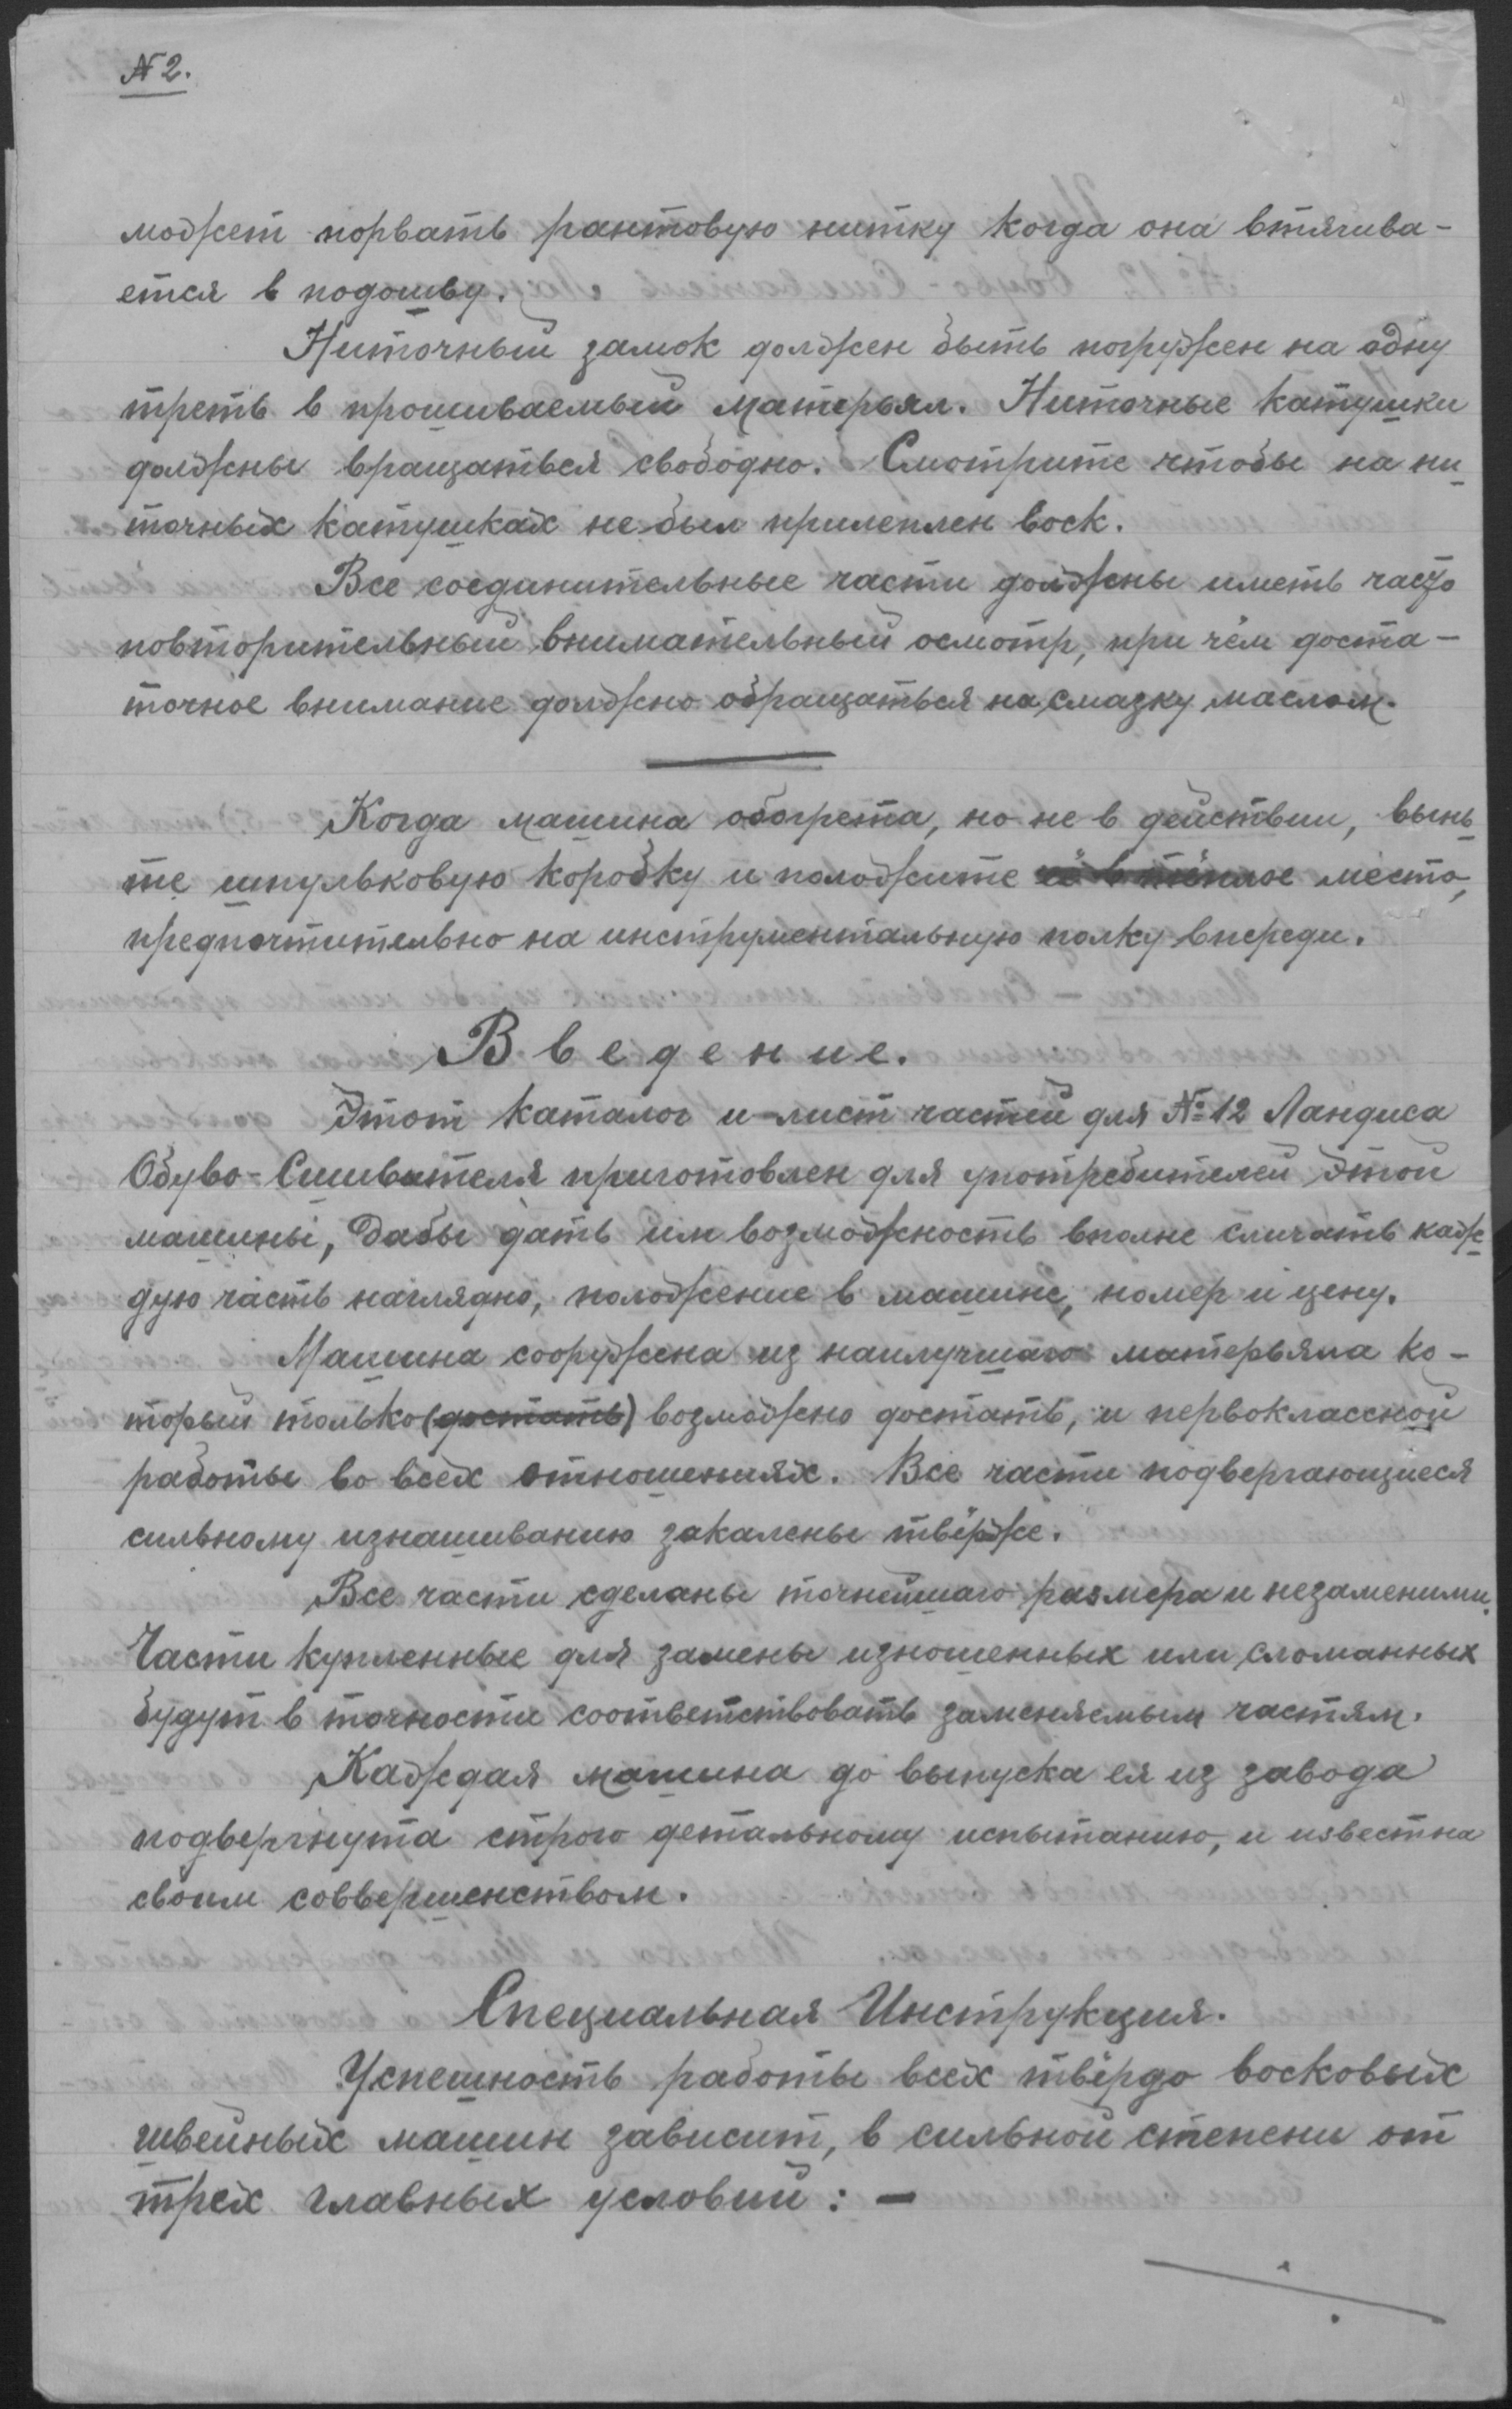 № 2.
может порвать рантовую нитку когда она втягива-
ется в подошву.
Ниточный замок должен быть погружен на одну
треть в прошиваемый матерьял. Ниточные катушки
должны вращаться свободно. Смотрите чтобы на ни
точных катушках не был прилеплен воск.
Все соединительные части должны иметь часто
повторительный внимательный осмотр, при чём доста-
точное внимание должно обращаться на смазку маслом.
Когда машина обогрета, но не в действии, вынь
те шпульковую коробку и положите её в тёплое место,
предпочтительно на инструментальную полку впереди.
Введение.
Этот каталог и лист частей для № 12 Ландиса
Обуво-Сшивателя приготовлен для употребителей этой
машины, дабы дать им возможность вполне сличать каж
дую часть наглядно, положение в машине, номер и цену.
Машина сооружена из наилучшаго матерьяла ко-
торый только (достать) возможно достать, и первоклассной
работы во всех отношениях. Все части подвергающиеся
сильному изнашиванию закалены твёрже.
Все части сделаны точнейшаго размера и незаменими.
Части купленные для замены изношенных или сломанных
будут в точности соответствовать заменяемым частям.
Каждая машина до выпуска ея из завода
подвергнута строго детальному испытанию, и известна
своим соввершенством.
Специальная Инструкция.
Успешность работы всех твёрдо восковых
швейных машин зависит, в сильной степени от
трех главных условий: –